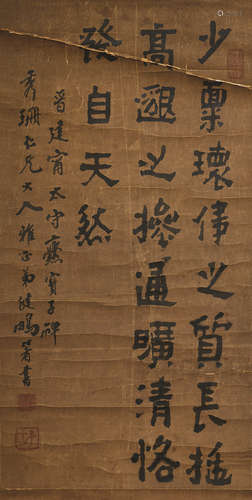 少稟瓌偉之質長挺
高邈之操通曠清恪
發自天然
晉建甯太守爨寶子碑
秀珊仁兄大人雅正弟健書